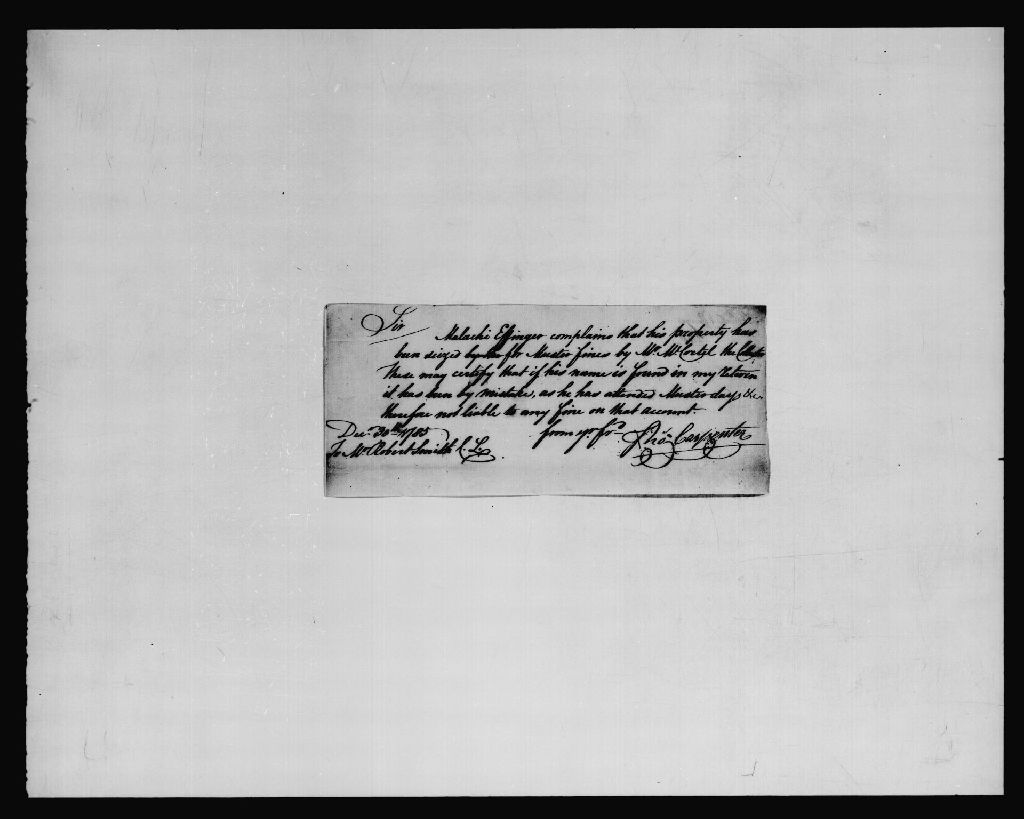 Sir
Malachi Effinger complains that his property has
been seized by for Muster fines by Mr. Mc the Collector
These may certify that if his name is found in my Return
it has been by mistake, as he has attended Muster days &c.
therefore not liable to any fine on that account.
from yr Sr. Thos. Carpenter
Decr. 30th 1785
To Mr. Robert Smith C. L.